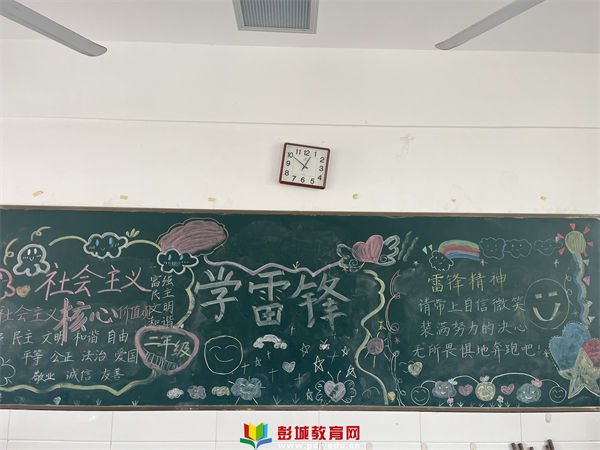 10 11 12 1 2 3 4 5 6 7 8 9
社会主义
核心价值观
富强
民主
文明
和谐
民主 文明 和谐 自由
平等 公正 法治 爱国
敬业 诚信 友善
二年级
学雷锋
雷锋精神
请带上自信微笑
装满努力的决心
无所畏惧地奔跑吧!
彭城教育网